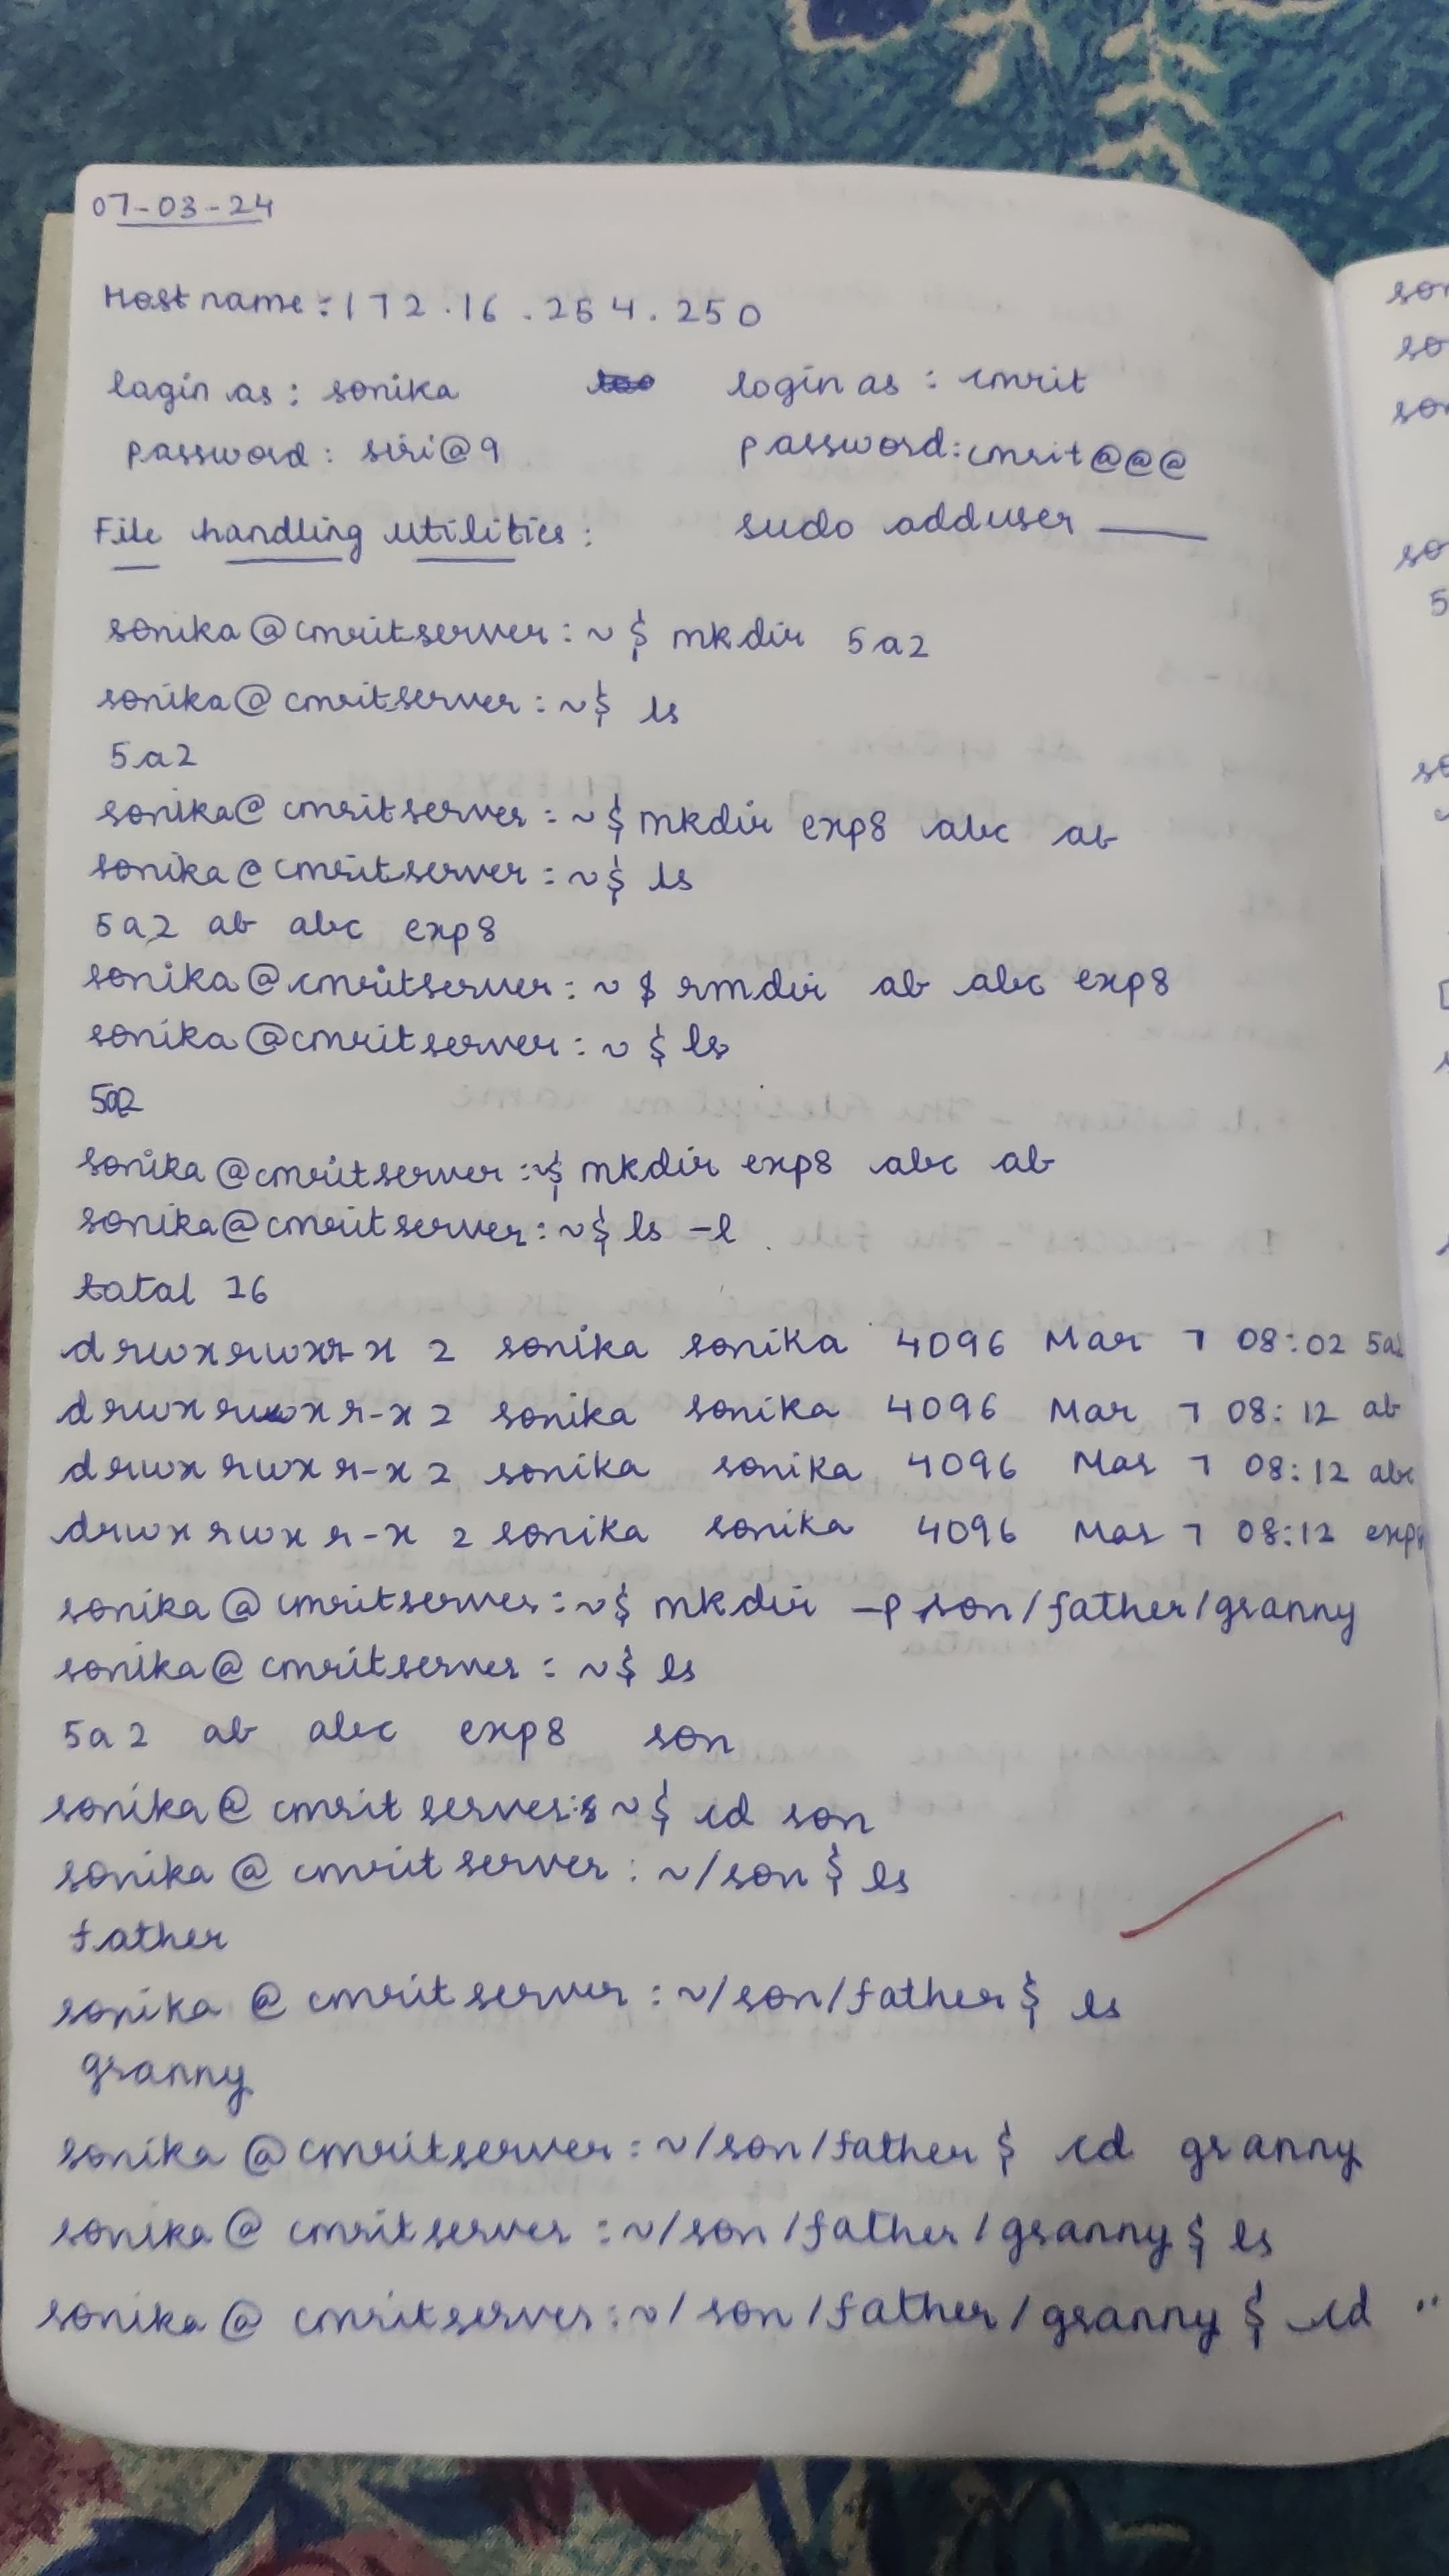 07-03-24
Host name : 172.16.254.250
login as : sonika
login as : cmrit
password : siri@9
password : cmrit@@@
File handling utilities :
sudo adduser ____
sonika@cmritserver:~$ mkdir 5a2
sonika@cmritserver:~$ ls
5a2
sonika@cmritserver:~$ mkdir exp8 abc ab
sonika@cmritserver:~$ ls
5a2 ab abc exp8
sonika@cmritserver:~$ rmdir ab abc exp8
sonika@cmritserver:~$ ls
5a2
sonika@cmritserver:~$ mkdir exp8 abc ab
sonika@cmritserver:~$ ls -l
total 16
drwxrwxr-x 2 sonika sonika 4096 Mar 7 08:02 5a2
drwxrwxr-x 2 sonika sonika 4096 Mar 7 08:12 ab
drwxrwxr-x 2 sonika sonika 4096 Mar 7 08:12 abc
drwxrwxr-x 2 sonika sonika 4096 Mar 7 08:12 exp8
sonika@cmritserver:~$ mkdir -p son/father/granny
sonika@cmritserver:~$ ls
5a2 ab abc exp8 son
sonika@cmritserver:~$ cd son
sonika@cmritserver:~/son$ ls
father
sonika@cmritserver:~/son/father$ ls
granny
sonika@cmritserver:~/son/father$ cd granny
sonika@cmritserver:~/son/father/granny$ ls
sonika@cmritserver:~/son/father/granny$ cd ..